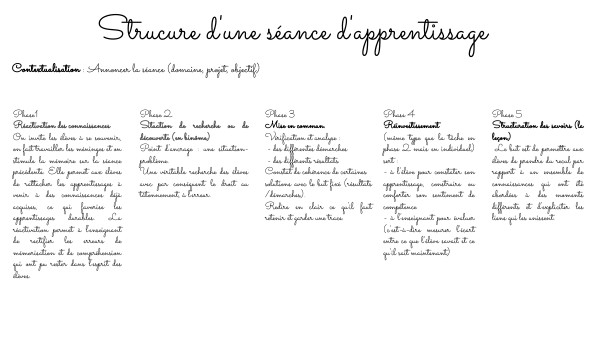 Strucure d'une séance d'apprentissage
Contextualisation : Annoncer la séance (domaine, projet, objectif)
Phase 1
Réactivation des connaissances
On invite les élèves à se souvenir,
on fait travailler les méninges et on
stimule la mémoire sur la séance
précédente. Elle permet aux élèves
de rattacher les apprentissages à
venir à des connaissances déjà
acquises, ce qui favorise les
apprentissages durables. La
réactivation permet à l'enseignant
de rectifier les erreurs de
mémorisation et de compréhension
qui ont pu rester dans l'esprit des
élèves.
Phase 2
Situation de recherche ou de
découverte (en binôme)
Point d'ancrage : une situation-
problème.
Une véritable recherche des élèves
avec par conséquent le droit au
tâtonnement, à l'erreur.
Phase 3
Mise en commun
Vérification et analyse :
- des différentes démarches
- des différents résultats
Constat de cohérence de certaines
solutions avec le but fixé (résultats
/démarches).
Redire en clair ce qu'il faut
retenir et garder une trace.
Phase 4
Réinvestissement
(même type que la tâche en
phase 2 mais en individuel)
sert
- à l'élève pour constater son
apprentissage, construire ou
conforter son sentiment de
compétence
- à l'enseignant pour évaluer
(c'est-à-dire mesurer l'écart
entre ce que l'élève savait et ce
qu'il sait maintenant)
Phase 5
Structuration des savoirs (la
leçon)
Le but est de permettre aux
élèves de prendre du recul par
rapport à un ensemble de
connaissances qui ont été
abordées à des moments
différents et d'expliciter les
liens qui les unissent.